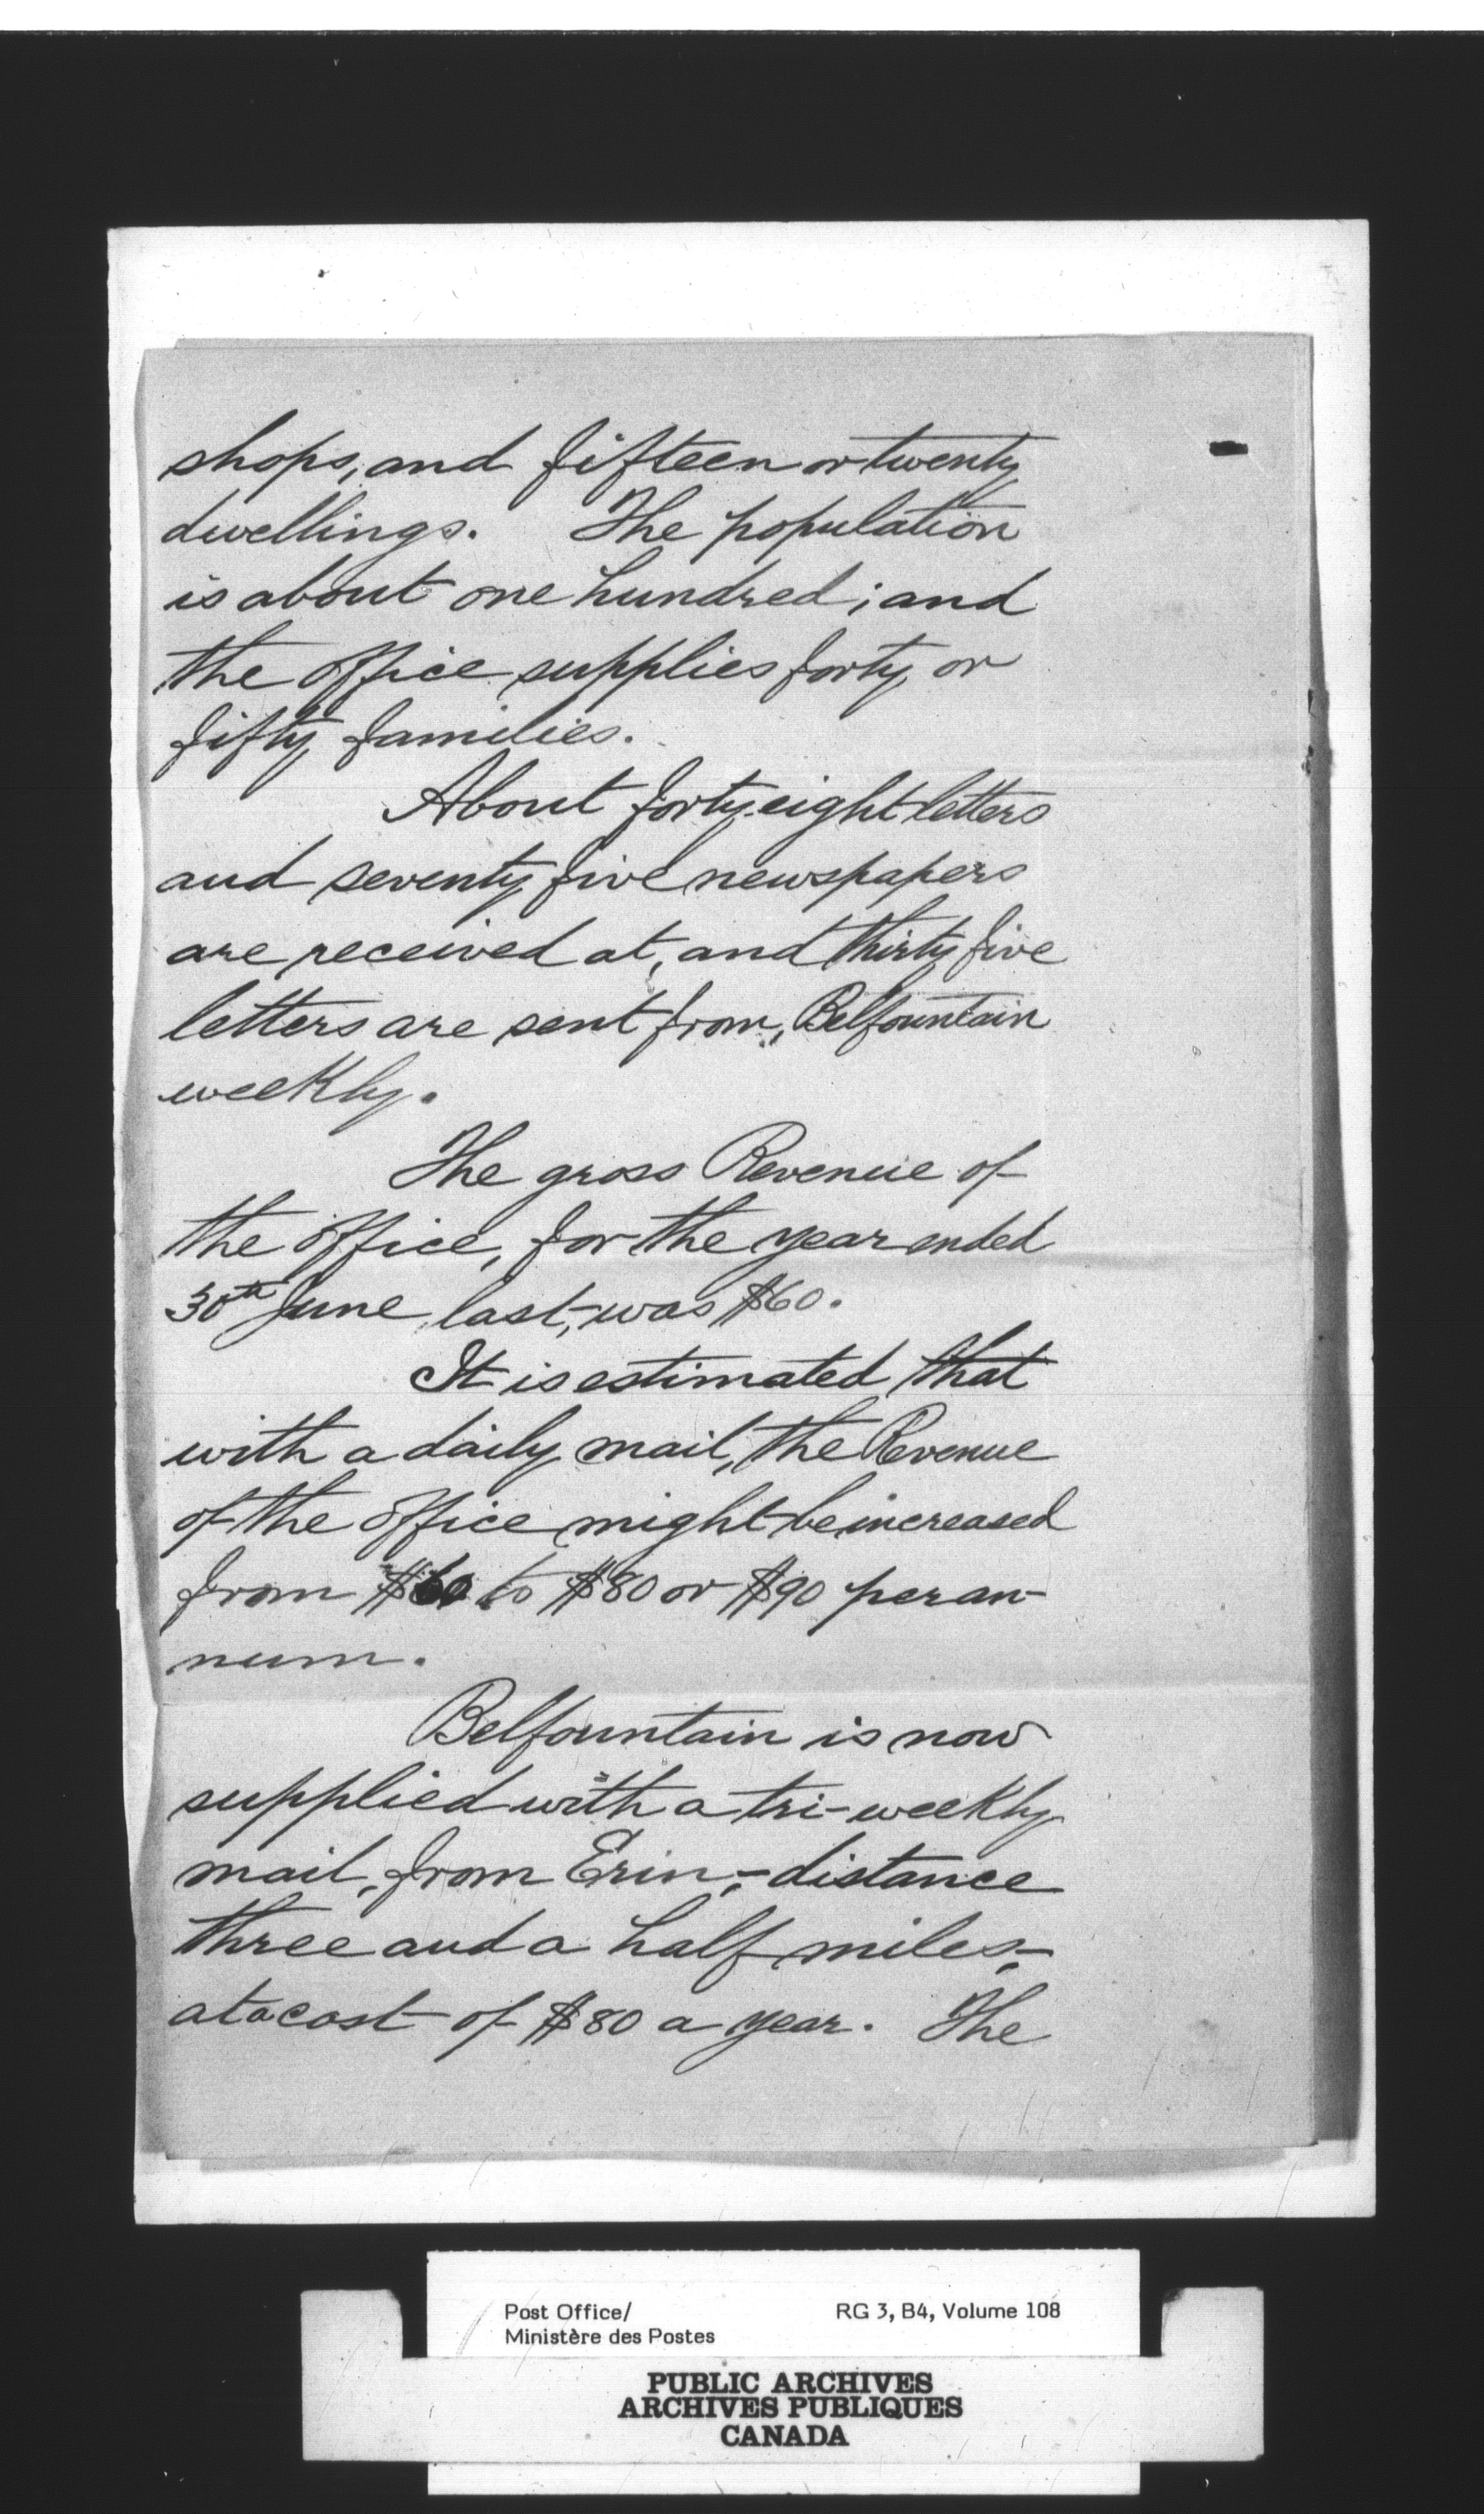 shops, and fifteen or twenty
dwellings. The population
is about one hundred; and
the office supplies forty or
fifty families.
About forty-eight letters
and seventy five newspapers
are received at, and thirty five
letters are sent from, Belfountain
weekly.
The gross Revenue of
the office, for the year ended
30th June last, was $60.
It is estimated that
with a daily mail, the Revenue
of the office might be increased
from $60 to $80 or $90 per an-
num.
Belfountain is now
supplied with a tri-weekly
mail, from Erin,- distance
three and a half miles,-
at a cost of $80 a year. The
Post Office/
Ministère des Postes
RG 3, B4, Volume 108
PUBLIC ARCHIVES
ARCHIVES PUBLIQUES
CANADA